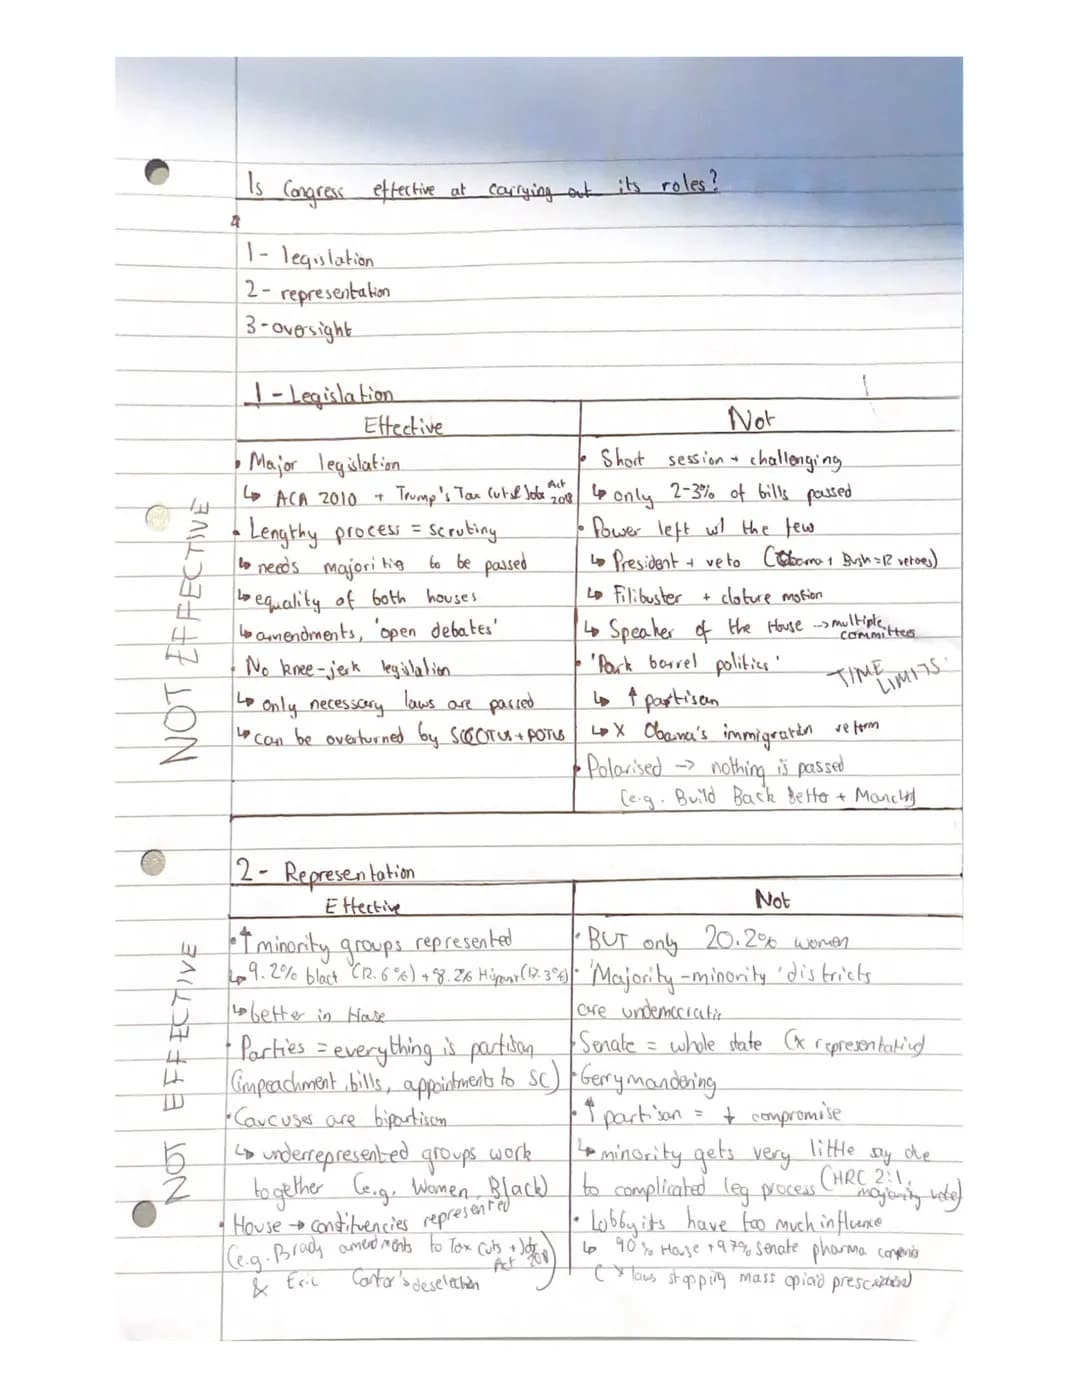 Is Congress effective at carrying out its roles?
1- legislation
2- representation
3-oversight
1 - Legislation
Effective
• Major legislation
↳ ACA 2010 + Trump's Tax Cuts & Jobs Act 2018
• Lengthy process = scrutiny
↳ needs majorities to be passed
↳ equality of both houses
↳ amendments, 'open debates'
• No knee-jerk legislation
↳ only necessary laws are passed
↳ can be overturned by SCOTUS + POTUS
Not
• Short session + challenging
↳ only 2-3% of bills passed
• Power left w/ the few
↳ President + veto (Obama + Bush = 12 vetoes)
↳ Filibuster + cloture motion
↳ Speaker of the House → multiple committees
• 'Pork barrel politics'
TIME LIMITS
↳ ↑ partisan
↳ X Obama's immigration reform
• Polarised → nothing is passed
(e.g. Build Back Better + Manchin)
NOT EFFECTIVE
2 - Representation
Effective
• ↑ minority groups represented
↳ 9.2% black (12.6%) + 8.2% Hispanic (17.3%)
↳ better in House
• Parties = everything is partisan
(impeachment, bills, appointments to SC)
• Caucuses are bipartison
↳ underrepresented groups work
together (e.g. Women, Black)
• House → constituencies represented
(e.g. Brady amendments to Tax Cuts + Jobs Act 2018)
& Eric Cantor's deselection
Not
• BUT only 20.2% women
• 'Majority-minority' districts
are undemocratic
• Senate = whole state (x representative)
• Gerrymandering
• ↑ partisan = ↓ compromise
↳ minority gets very little say due
to complicated leg process (HRC 2:1, majority vote)
• Lobbyists have too much influence
↳ 90% House + 97% Senate pharma
(x laws stopping mass opioid
NOT EFFECTIVE